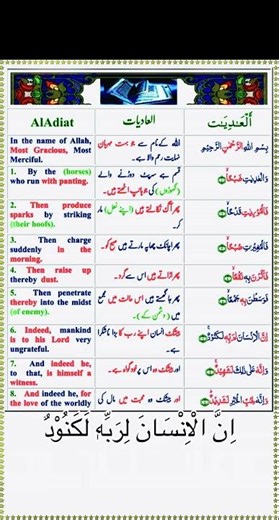 AlAdiat
العاديات
اَلْعٰدِيٰت
In the name of Allah,
Most Gracious, Most
Merciful.
اللہ کے نام سے جو بہت مہربان
نہایت رحم والا ہے۔
بِسْمِ اللهِ الرَّحْمٰنِ الرَّحِيْمِ
1. By the (horses)
who run with panting.
قسم ہے سرپٹ دوڑنے والے
(گھوڑوں) کی جو ہانپ اٹھتے ہیں۔
وَالْعٰدِيٰتِ ضَبْحًا
2. Then produce
sparks by striking
(their hoofs).
پھر آگ نکالتے ہیں (اپنے نعل) مار
کر۔
فَالْمُوْرِيٰتِ قَدْحًا
3. Then charge
suddenly in the
morning.
پھر اچانک چھاپہ مارتے ہیں صبح کو۔
فَالْمُغِيْرٰتِ صُبْحًا
4. Then raise up
thereby dust.
پھر اڑاتے ہیں اس سے گرد۔
فَاَثَرْنَ بِهٖ نَقْعًا
5. Then penetrate
thereby into the midst
(of enemy).
پھر جا گھستے ہیں اس حالت میں مجمع
میں (دشمن کے)۔
فَوَسَطْنَ بِهٖ جَمْعًا
6. Indeed, mankind
is to his Lord very
ungrateful.
بیشک انسان اپنے رب کا بڑا ناشکرا
ہے۔
اِنَّ الْاِنْسَانَ لِرَبِّهٖ لَكَنُوْدٌ
7. And indeed he,
to that, is himself a
witness.
اور بیشک وہ اس پر خود گواہ ہے۔
وَاِنَّهٗ عَلٰى ذٰلِكَ لَشَهِيْدٌ
8. And indeed he, for
the love of the worldly
اور بیشک وہ محبت میں مال کی
وَاِنَّهٗ لِحُبِّ الْخَيْرِ لَشَدِيْدٌ
اِنَّ الْاِنْسَانَ لِرَبِّهٖ لَكَنُوْدٌ